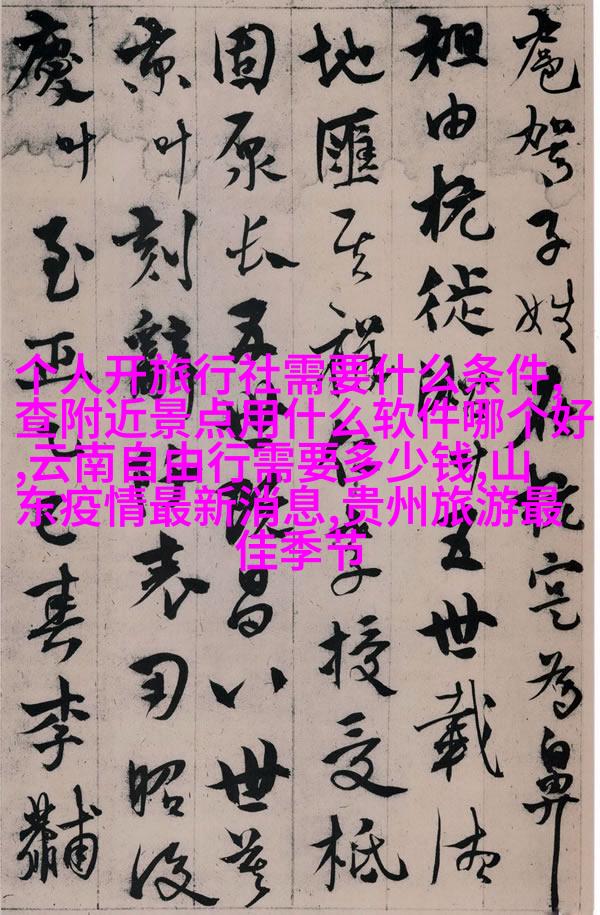 子姓定為鼻
祖由杭徙五世載德
地匯其子授受祗
固原長五昌八世莫
京叶刻表用昭後
慶叶至正巳春李黼
个人开旅行社需要什么条件,
查附近景点用什么软件哪个好
,云南自由行需要多少钱,山
东疫情最新消息,贵州旅游最
佳季节